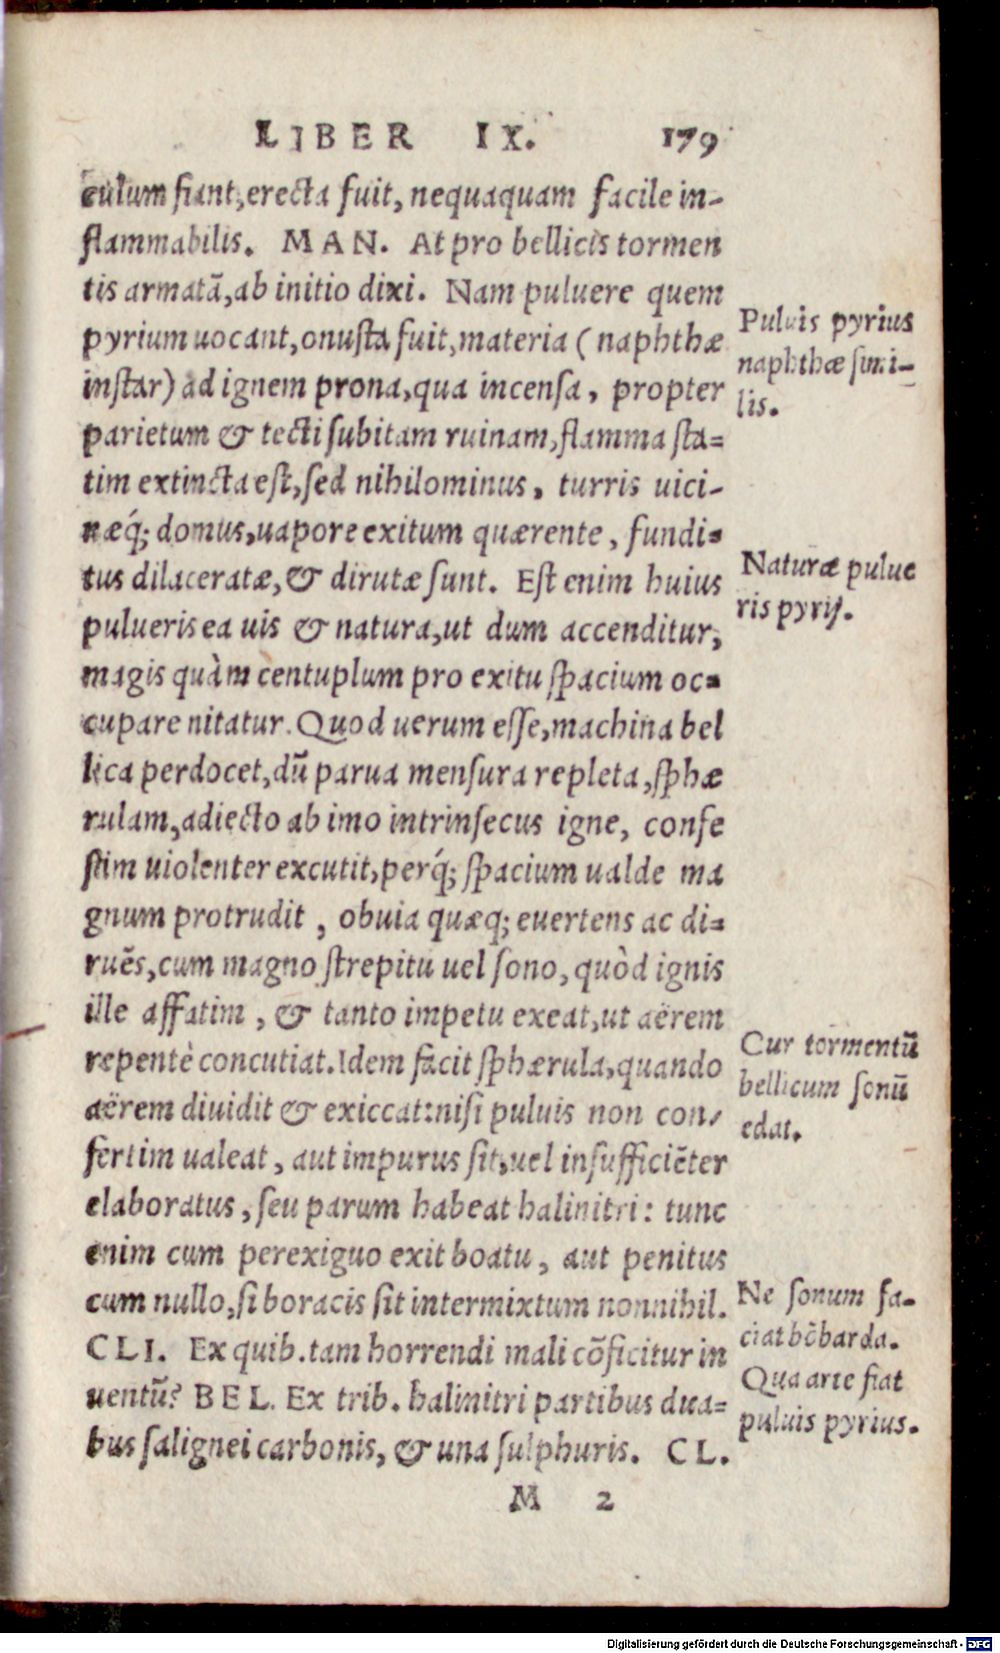 LIBER IX. 179
culum fiant, erecta fuit, nequaquam facile in-
flammabilis. MAN. At pro bellicis tormen
tis armatã, ab initio dixi. Nam puluere quem
pyrium uocant, onusta fuit, materia ( naphthæ
instar) ad ignem prona, qua incensa, propter
parietum & tecti subitam ruinam, flamma sta=
tim extincta est, sed nihilominus, turris uici-
næq́; domus, uapore exitum quærente, fundi=
tus dilaceratæ, & dirutæ sunt. Est enim huius
pulueris ea uis & natura, ut dum accenditur,
magis quàm centuplum pro exitu spacium oc=
cupare nitatur. Quod uerum esse, machina bel
lica perdocet, dũ parua mensura repleta, sphæ
rulam, adiecto ab imo intrinsecus igne, confe
stim uiolenter excutit, perq́; spacium ualde ma
gnum protrudit, obuia quæq; euertens ac di=
ruẽs, cum magno strepitu uel sono, quòd ignis
ille affatim, & tanto impetu exeat, ut aërem
repentè concutiat. Idem facit sphærula, quando
aërem diuidit & exiccat: nisi puluis non con-
fertim ualeat, aut impurus sit, uel insufficiẽter
elaboratus, seu parum habeat halinitri: tunc
enim cum perexiguo exit boatu, aut penitus
cum nullo, si boracis sit intermixtum nonnihil.
CLI. Ex quib. tam horrendi mali cõficitur in
uentũ? BEL. Ex trib. halinitri partibus dua=
bus salignei carbonis, & una sulphuris. CL.
M 2
Puluis pyrius
naphthæ simi-
lis.
Naturæ pulue
ris pyrij.
Cur tormentũ
bellicum sonũ
edat.
Ne sonum fa-
ciat bõbarda.
Qua arte fiat
puluis pyrius.
Digitalisierung gefördert durch die Deutsche Forschungsgemeinschaft - DFG